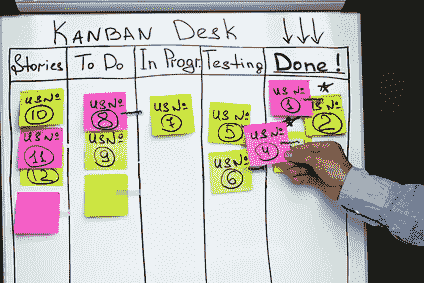 KANBAN DESK
Stories
To Do
In Progr.
Testing
Done!
US№
10
US№
11
12
US№
8
US№
9
US№
7
US№
5
US№
6
US№
4
US№
1
US№
2